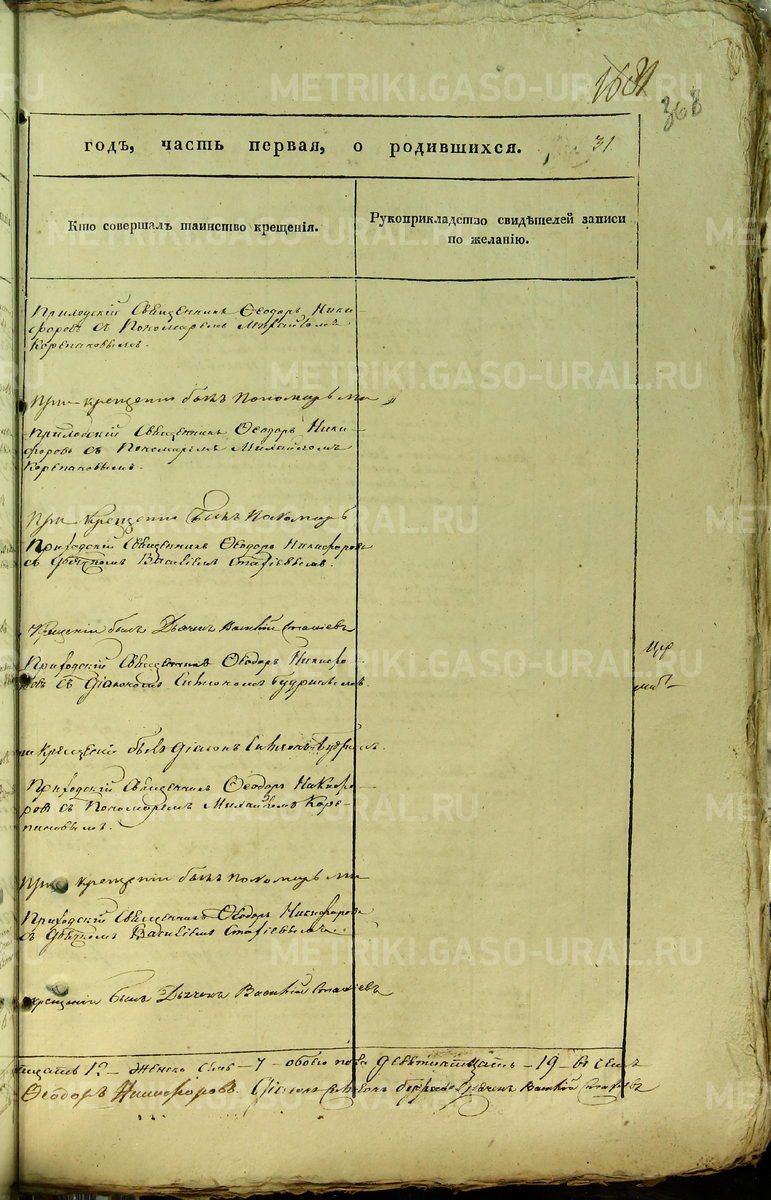 METRIKI.GASO-URAL.RU
368
годъ, часть первая, о родившихся. 31
Кто совершалъ таинство крещенія.
Рукоприкладство свидѣтелей записи
по желанію.
Приходскій Священникъ Ѳеодоръ Ники-
форовъ съ Пономаремъ Михаиломъ
Корепановымъ.
При крещеніи былъ Пономарь Ми
Приходскій Священникъ Ѳеодоръ Ники-
форовъ съ Пономаремъ Михаиломъ
Корепановымъ.
При крещеніи былъ Пономарь
Приходскій Священникъ Ѳеодоръ Никифоровъ
съ Дьячкомъ Василіемъ
крещеніи былъ Дьячекъ Василій
Приходскій Священникъ Ѳеодоръ Никифо-
ровъ съ Діакономъ
крещеніи былъ Діаконъ
Приходскій Священникъ Ѳеодоръ Никифо-
ровъ съ Пономаремъ Михаиломъ Коре-
пановымъ.
При крещеніи былъ пономарь Ми
Приходскій Священникъ Ѳеодоръ Никифоровъ
съ Дьячкомъ Василіемъ
крещеніи былъ Дьячекъ Василій
12 – женска семь – 7 – обоего пола девятнатцать – 19 –
Ѳеодоръ Никифоровъ Діаконъ Дьячекъ Василій